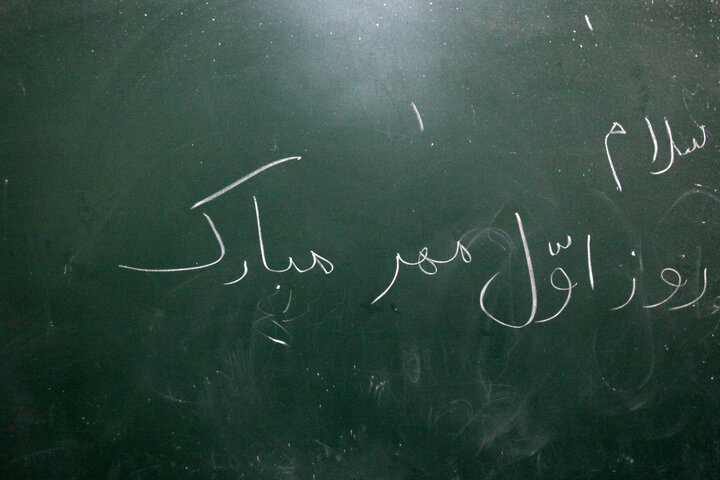 سلام
روز اوّل مهر مبارک